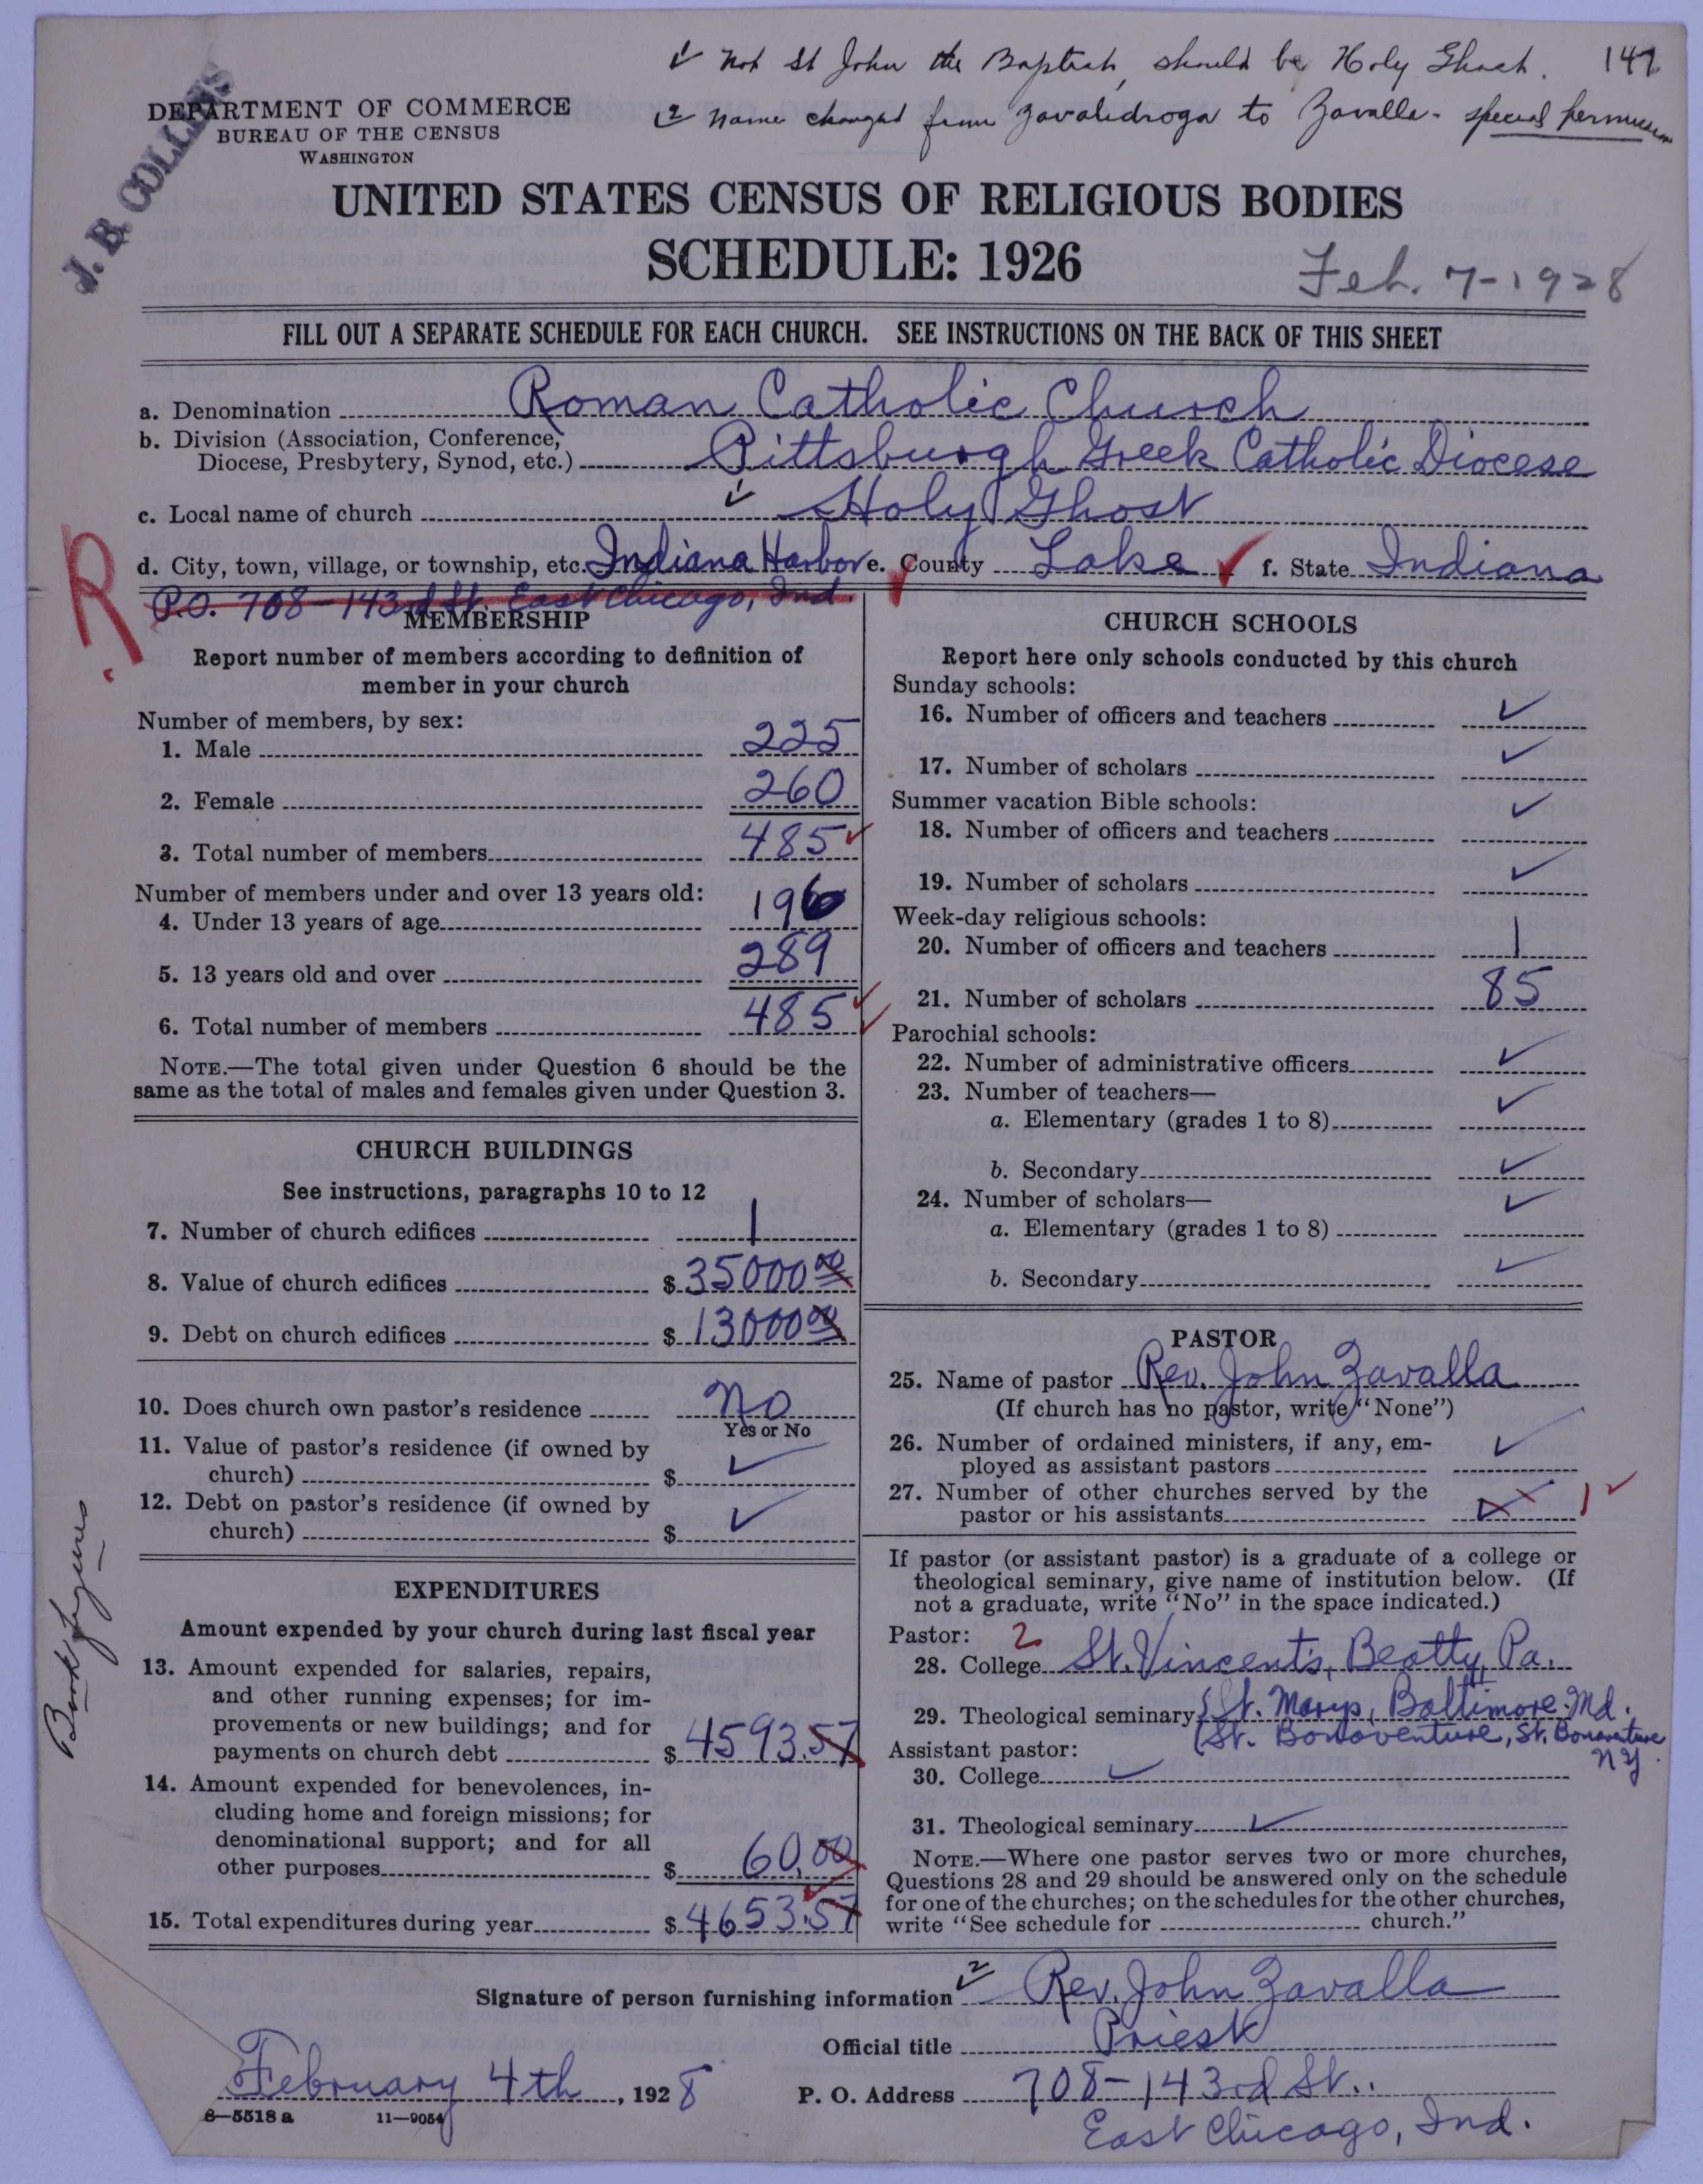 ✓1 Not St John the Baptist, should be Holy Ghost. 147
✓2 Name changed from Zavalidroga to Zavalla - special permission
J. B. COLLINS
DEPARTMENT OF COMMERCE
BUREAU OF THE CENSUS
WASHINGTON
UNITED STATES CENSUS OF RELIGIOUS BODIES
SCHEDULE: 1926
Feb. 7-1928
FILL OUT A SEPARATE SCHEDULE FOR EACH CHURCH. SEE INSTRUCTIONS ON THE BACK OF THIS SHEET
a. Denomination Roman Catholic Church
b. Division (Association, Conference, Diocese, Presbytery, Synod, etc.) Pittsburgh Greek Catholic Diocese
c. Local name of church ✓1 Holy Ghost
d. City, town, village, or township, etc. Indiana Harbor e. County Lake ✓ f. State Indiana
R
P.O. 708-143rd St. East Chicago, Ind.
MEMBERSHIP
Report number of members according to definition of
member in your church
Number of members, by sex:
1. Male 225
2. Female 260
3. Total number of members 485 ✓
Number of members under and over 13 years old:
4. Under 13 years of age 196
5. 13 years old and over 289
6. Total number of members 485 ✓
NOTE.—The total given under Question 6 should be the
same as the total of males and females given under Question 3.
CHURCH BUILDINGS
See instructions, paragraphs 10 to 12
7. Number of church edifices 1
8. Value of church edifices $ 35000 00
9. Debt on church edifices $ 13000 00
10. Does church own pastor's residence No
Yes or No
11. Value of pastor's residence (if owned by
church) $ ✓
12. Debt on pastor's residence (if owned by
church) $ ✓
EXPENDITURES
Amount expended by your church during last fiscal year
13. Amount expended for salaries, repairs,
and other running expenses; for im-
provements or new buildings; and for
payments on church debt $ 4593.57
14. Amount expended for benevolences, in-
cluding home and foreign missions; for
denominational support; and for all
other purposes $ 60.00
15. Total expenditures during year $ 4653.57
Book figures
CHURCH SCHOOLS
Report here only schools conducted by this church
Sunday schools:
16. Number of officers and teachers ✓
17. Number of scholars ✓
Summer vacation Bible schools:
18. Number of officers and teachers ✓
19. Number of scholars ✓
Week-day religious schools:
20. Number of officers and teachers 1
21. Number of scholars 85
Parochial schools:
22. Number of administrative officers ✓
23. Number of teachers—
a. Elementary (grades 1 to 8) ✓
b. Secondary ✓
24. Number of scholars—
a. Elementary (grades 1 to 8) ✓
b. Secondary ✓
PASTOR
25. Name of pastor Rev. John Zavalla
(If church has no pastor, write "None")
26. Number of ordained ministers, if any, em-
ployed as assistant pastors ✓
27. Number of other churches served by the
pastor or his assistants 1 ✓
If pastor (or assistant pastor) is a graduate of a college or
theological seminary, give name of institution below. (If
not a graduate, write "No" in the space indicated.)
Pastor: 2
28. College St. Vincent's, Beatty, Pa.
29. Theological seminary { St. Marys, Baltimore Md.
St. Bonaventure, St. Bonaventure N.Y.
Assistant pastor:
30. College ✓
31. Theological seminary ✓
NOTE.—Where one pastor serves two or more churches,
Questions 28 and 29 should be answered only on the schedule
for one of the churches; on the schedules for the other churches,
write "See schedule for church."
Signature of person furnishing information ✓2 Rev. John Zavalla
Official title Priest
February 4th, 1928 P. O. Address 708-143rd St.
East Chicago, Ind.
8—5518 a 11—9054